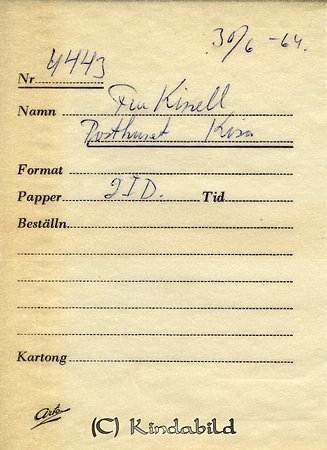 30/6 -64.
Nr 4443
Namn Fru Kinell
Posthuset Kisa
Format
Papper 2ID. Tid
Beställn.
Kartong
Arko
(C) Kindabild